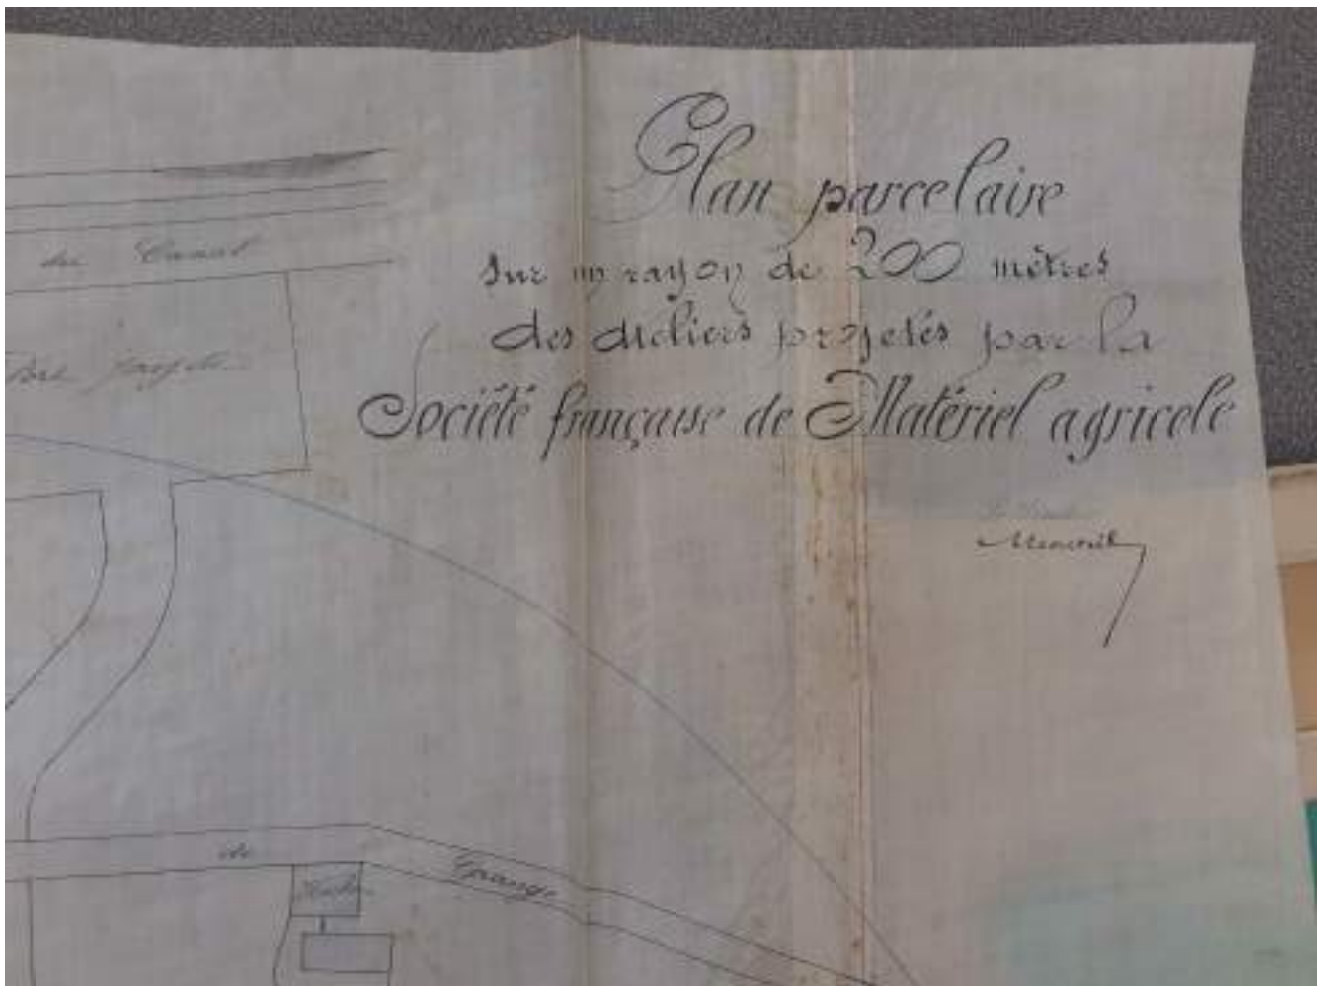 Plan parcelaire
sur un rayon de 200 mètres
des ateliers projetés par la
Société française de Matériel agricole
du Canal
de
Grange